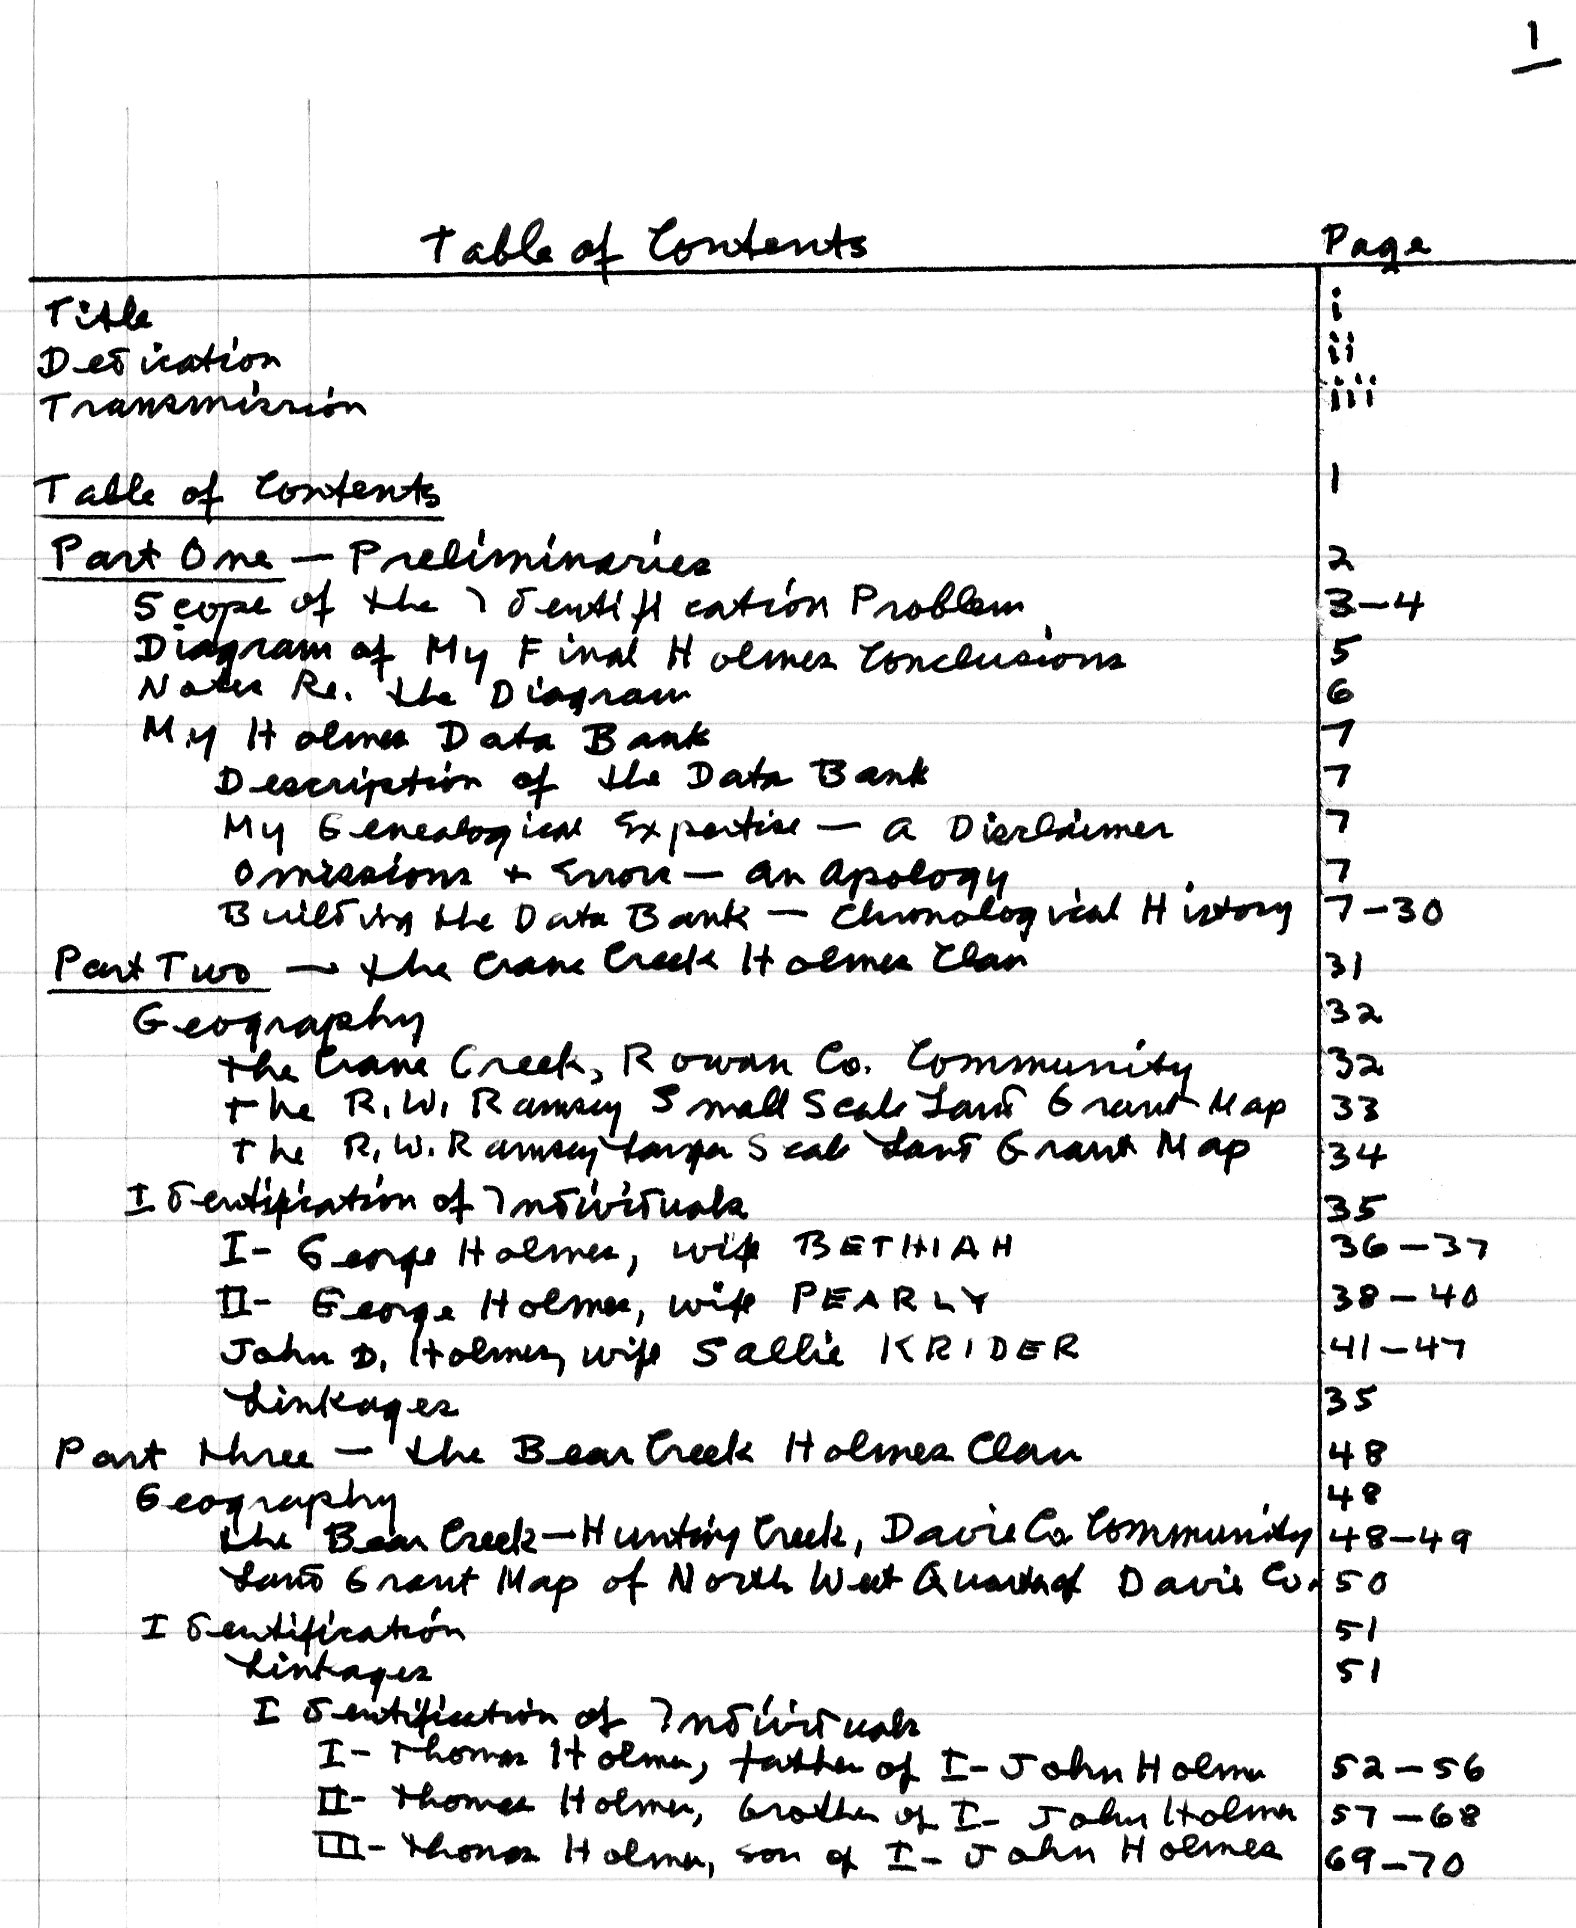 1
Table of Contents Page
Title i
Dedication ii
Transmission iii
Table of Contents 1
Part One — Preliminaries 2
Scope of the Identification Problem 3-4
Diagram of My Final Holmes Conclusions 5
Notes Re. the Diagram 6
My Holmes Data Bank 7
Description of the Data Bank 7
My Genealogical Expertise — a Disclaimer 7
Omissions + Errors — an apology 7
Building the Data Bank — Chronological History 7-30
Part Two — the Crane Creek Holmes Clan 31
Geography 32
the Crane Creek, Rowan Co. Community 32
the R.W. Ramsey Small Scale Land Grant Map 33
the R.W. Ramsey Larger Scale Land Grant Map 34
Identification of Individuals 35
I- George Holmes, wife BETHIAH 36-37
II- George Holmes, wife PEARLY 38-40
John D. Holmes, wife Sallie KRIDER 41-47
Linkages 35
Part three — the Bear Creek Holmes Clan 48
Geography 48
the Bear Creek-Hunting Creek, Davie Co. Community 48-49
Land Grant Map of North West Quarter of Davie Co. 50
Identification 51
Linkages 51
Identification of Individuals
I- Thomas Holmes, father of I- John Holmes 52-56
II- Thomas Holmes, brother of I- John Holmes 57-68
III- Thomas Holmes, son of I- John Holmes 69-70